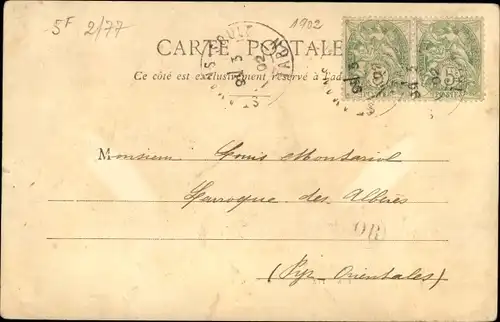 5F 2/77
1902
CARTE POSTALE
Ce côté est exclusivement réservé à l'ad
Monsieur Louis Montariol
Larroque des Albères
(Pyr-Orientales)